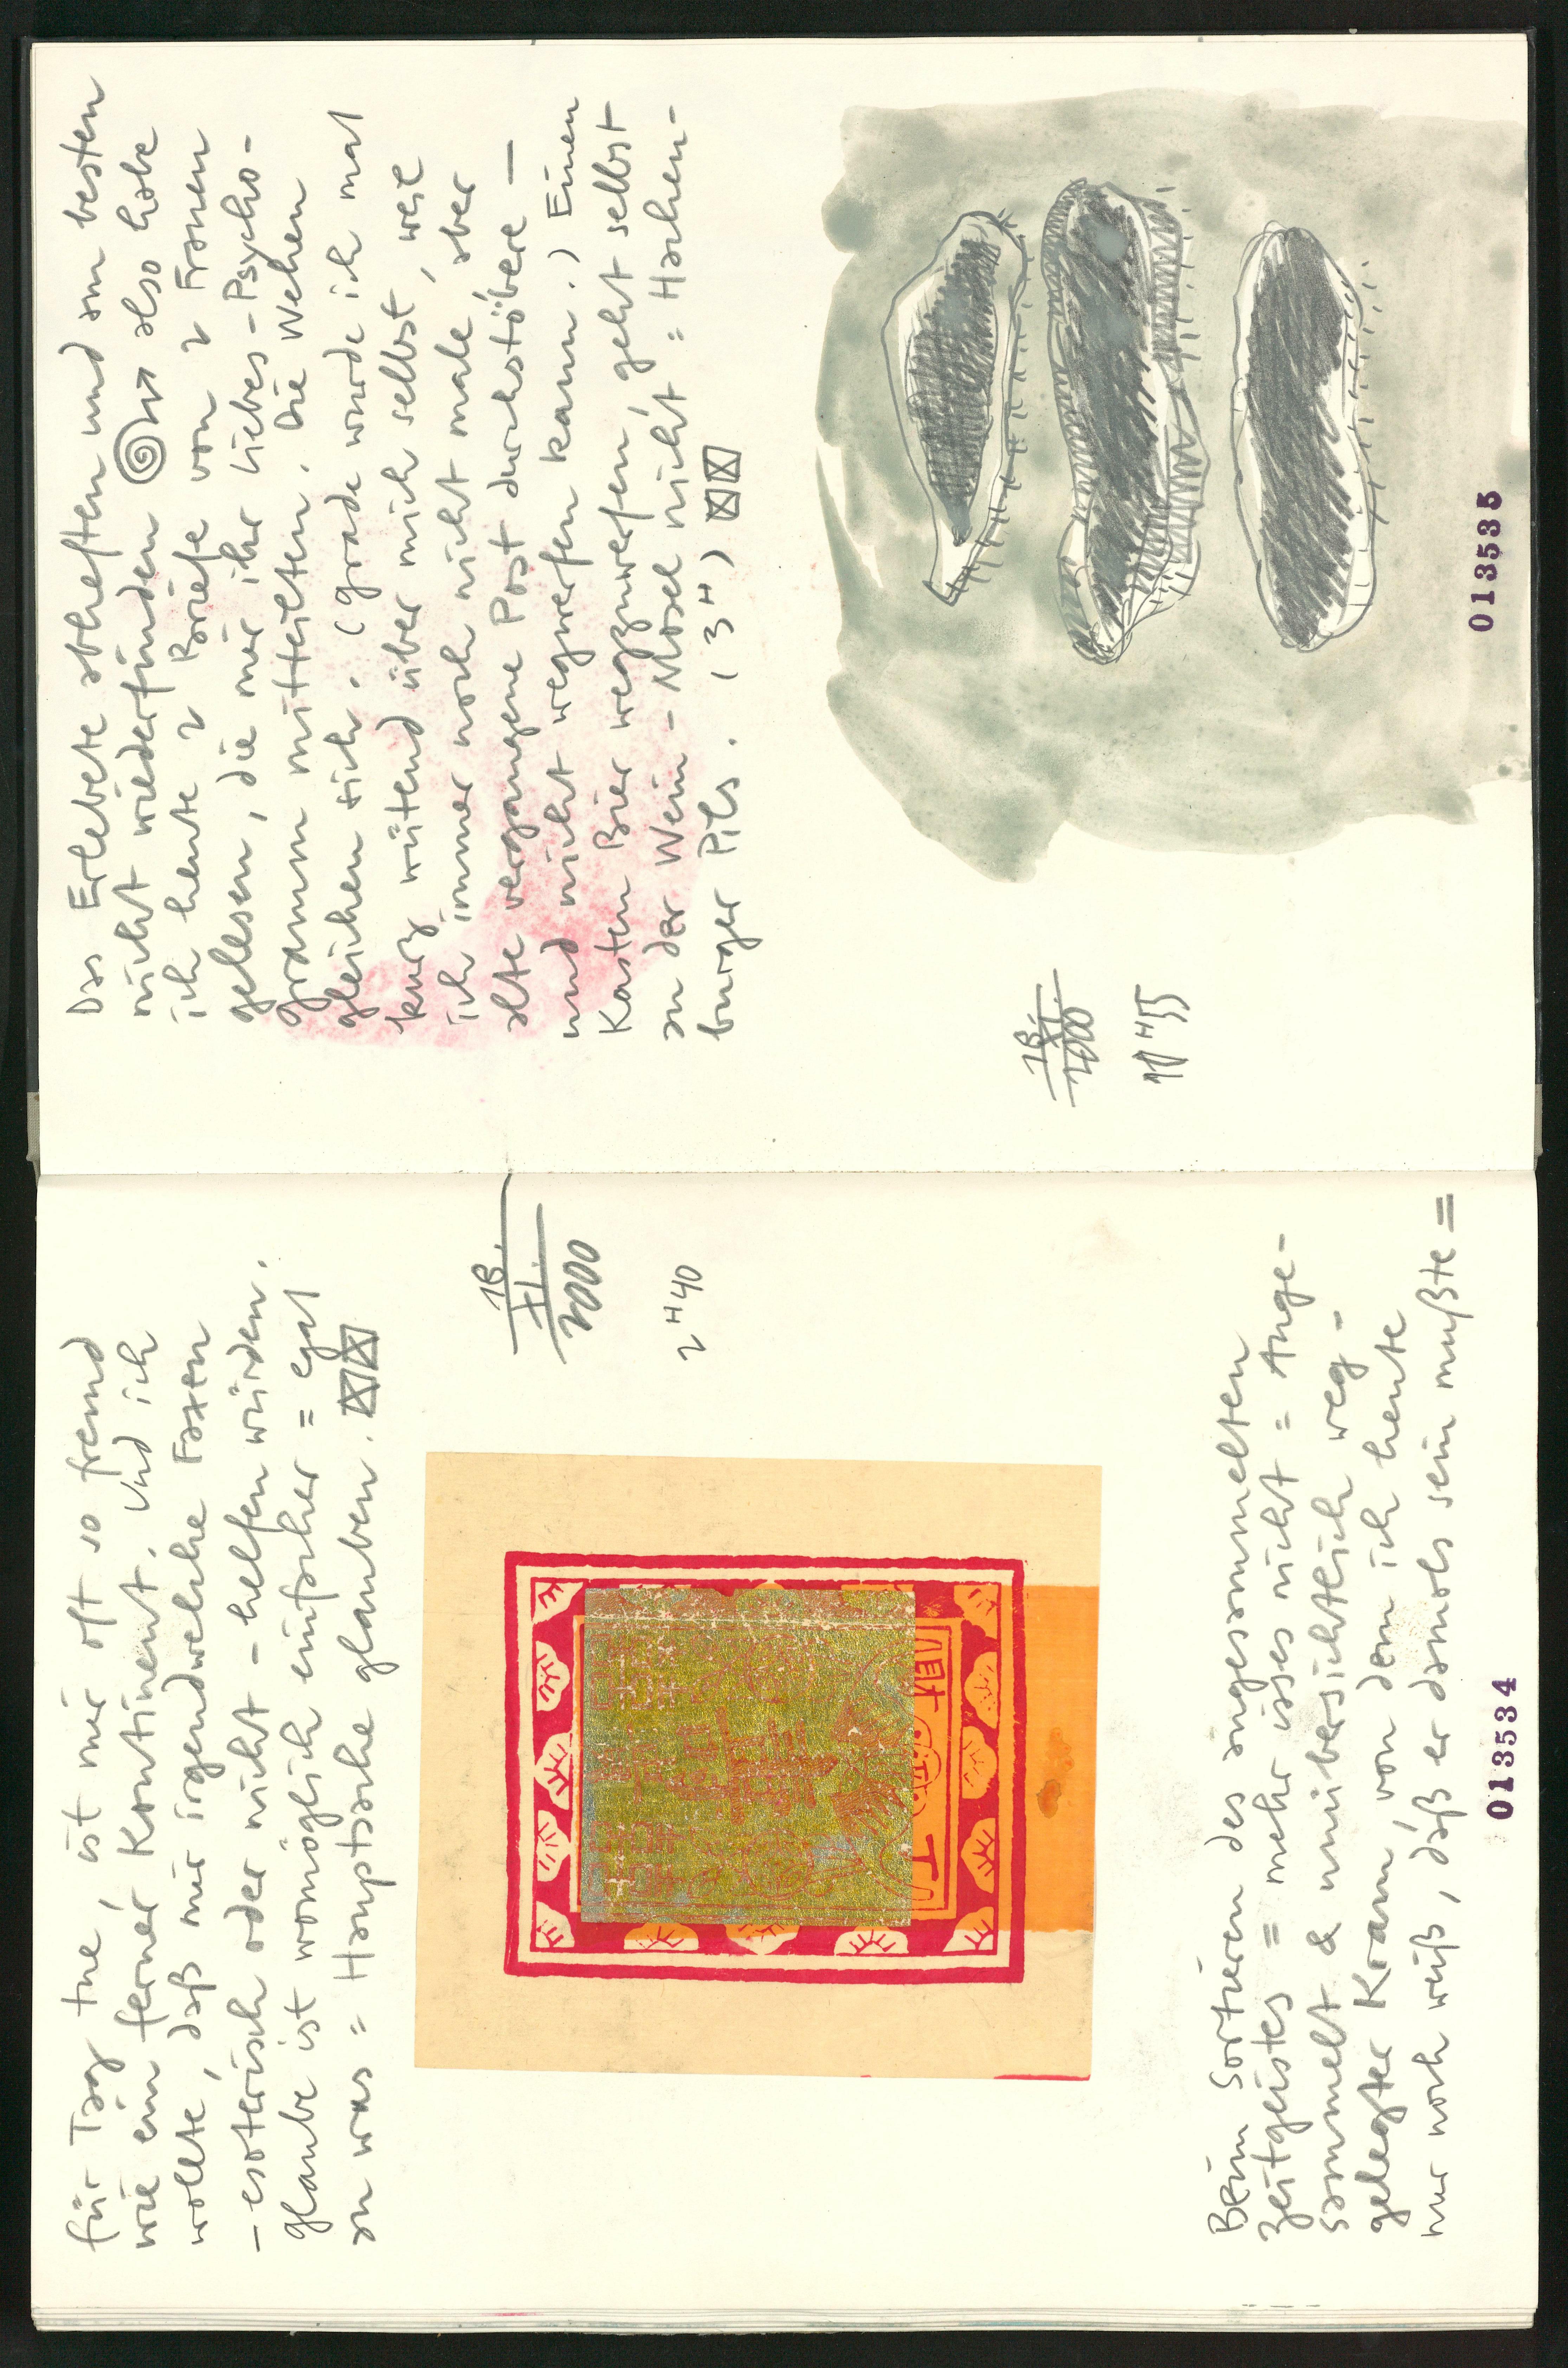 für Tag tue, ist mir oft so fremd
wie ein ferner Kontinent. Und ich
wollte, daß mir irgendwelche Faxen
- esoterisch oder nicht - helfen würden.
glaube ist womöglich einfacher = egal
an was = Hauptsache glauben.
18.
XI.
2000
2 H 40
Beim Sortieren des angesammelten
Zeitgeistes = mehr isses nicht = Ange-
sammelt & unübersichtlich weg-
gelegter Kram, von dem ich heute
nur noch weiß, daß er damals sein mußte =
013534
Das Erlebte abheften und am besten
nicht wiederfinden also habe
ich heute 2 Briefe von 2 Frauen
gelesen, die mir ihr Liebes-Psycho-
gramm mitteilten. Die Wehen
gleichen sich. (Grade wurde ich mal
kurz wütend über mich selbst, weil
ich immer noch nicht male, aber
alte vergangene Post durchstöbere —
und nicht wegwerfen kann.) Einen
Kasten Bier wegzuwerfen, geht selbst
an der Wein-Mosel nicht = Hachen-
burger Pils. (3 H)
18.
XI.
2000
H 55
013535